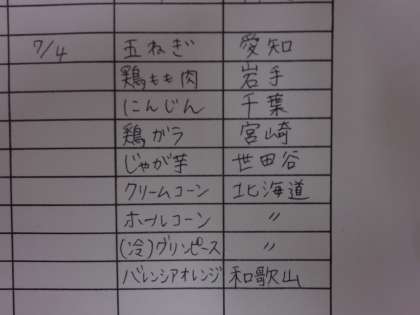 7/4 玉ねぎ 愛知
鶏もも肉 岩手
にんじん 千葉
鶏ガラ 宮崎
じゃが芋 世田谷
クリームコーン 北海道
ホールコーン 〃
(冷)グリンピース 〃
バレンシアオレンジ 和歌山